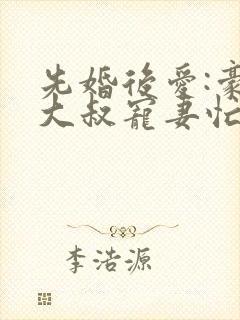 先婚後愛:豪
大叔寵妻忙
李浩源